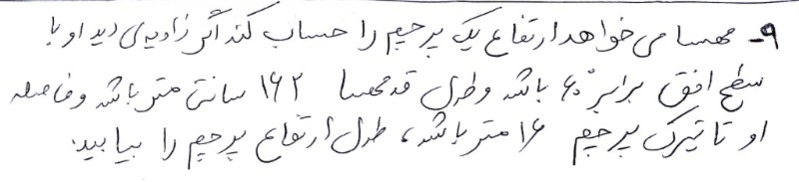 ۹- مهسا می خواهد ارتفاع یک پرچم را حساب کند اگر زاویه‌ی دید او با
سطح افق برابر ۶۰° باشد و طول قد مهسا ۱۶۲ سانتی متر باشد و فاصله
او تا تیرک پرچم ۱۶ متر باشد، طول ارتفاع پرچم را بیابید.